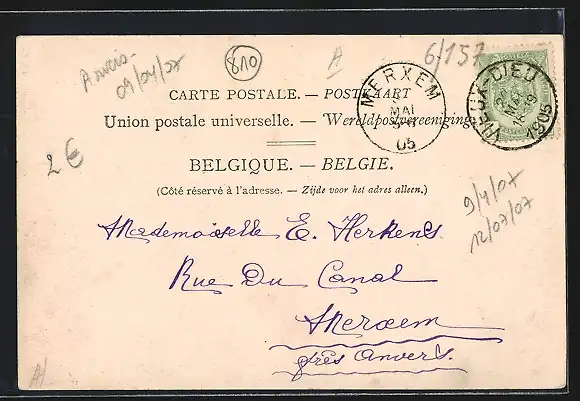 Anvers
09/04/07
810
A
6/157
CARTE POSTALE. — POSTKAART
Union postale universelle. — Wereldpostvereeniging.
MERXEM
MAI
05
VIEUX-DIEU
MAI
1905
2€
BELGIQUE. — BELGIE.
(Côté réservé à l'adresse. — Zijde voor het adres alleen.)
9/4/07
12/07/07
Mademoiselle E. Herkens
Rue Du Canal
Merxem
près Anvers.
A/